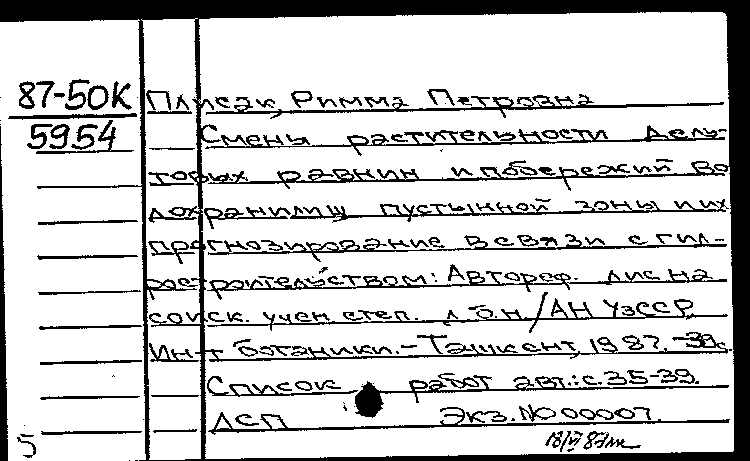 87-50К
5954
Плисак, Римма Петровна
Смены растительности дель-
товых равнин и побережий во
дохранилищ пустынной зоны и их
прогнозирование в связи с гид-
ростроительством: Автореф. дис на
соиск. учен степ. д.б.н./АН УзССР,
Ин-т ботаники.-Ташкент, 1987.-39с.
Список работ авт.: с.35-39.
ДСП Экз. № 00007.
5